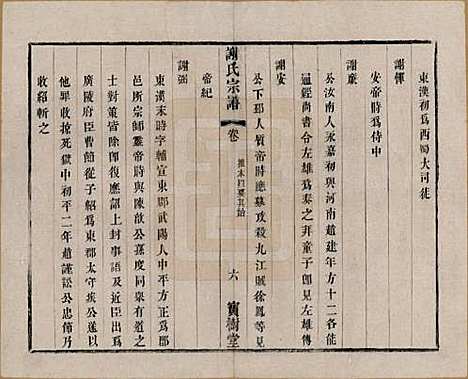 東漢初爲西蜀大司徒
謝惲
安帝時爲侍中
謝廉
公汝南人永嘉初與河南趙建年方十二各能
通經尚書令左雄爲奏之拜童子郎見左雄傳
謝安
公下邳人質帝時應募攻殺九江賊徐鳳等見
謝氏宗譜
卷
推本四要其始
六
寶樹堂
帝紀
謝弼
東漢末時字輔宣東郡武陽人中平方正爲郡
邑所宗師靈帝時與陳敦公嘉度同東有道之
對策皆除郎復應詔上封事語及近臣出爲
廣陵府臣曹節從子紹爲東郡太守挨公遂以
他罪收掠死獄中初平二年趙謹訟公忠節乃
收紹斬之